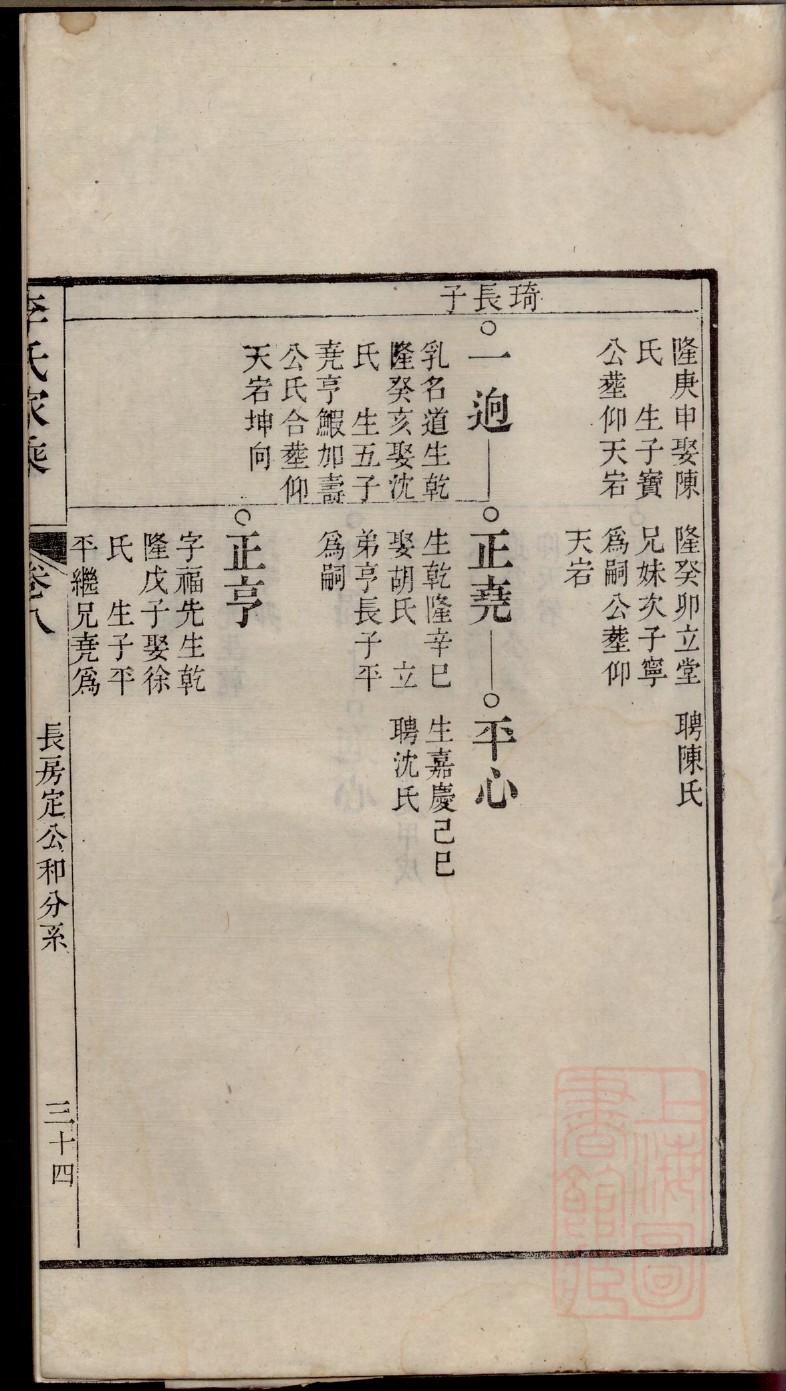 琦長子
隆庚申娶陳
氏　生子寳
公塟仰天宕
隆癸卯立堂
兄妹次子寧
爲嗣公塟仰
天宕
聘陳氏
一逈
乳名道生乾
隆癸亥娶沈
氏　生五子
堯亨鰕加壽
公氏合塟仰
天宕坤向
正堯
生乾隆辛巳
娶胡氏　立
弟亨長子平
爲嗣
平心
生嘉慶己巳
聘沈氏
正亨
字福先生乾
隆戊子娶徐
氏　生子平
平繼兄堯爲
李氏家乘
卷八
長房定公和分系
三十四
上海圖
書館藏